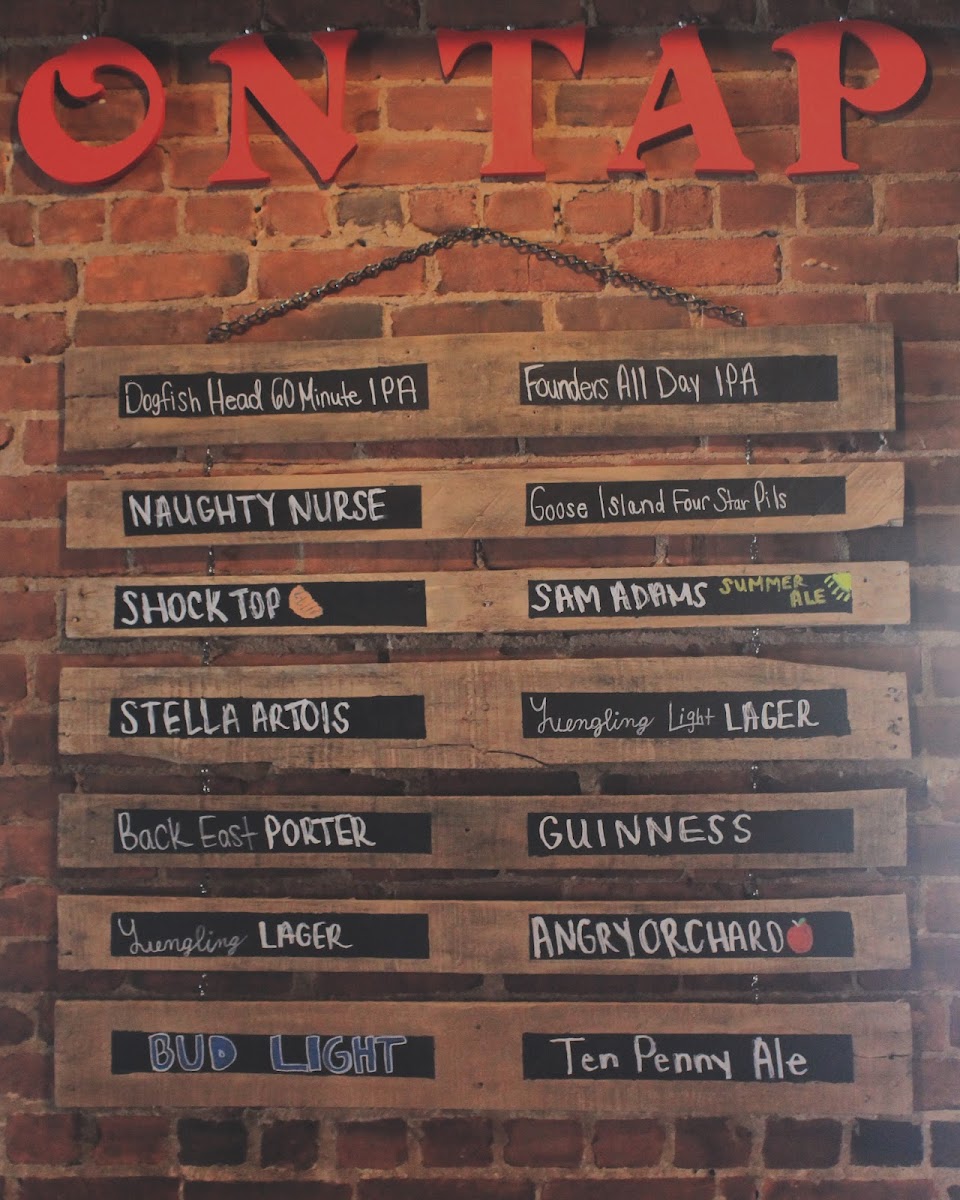 ON TAP
Dogfish Head 60 Minute IPA
Founders All Day IPA
NAUGHTY NURSE
Goose Island Four Star Pils
SHOCK TOP
SAM ADAMS SUMMER ALE
STELLA ARTOIS
Yuengling Light LAGER
Back East PORTER
GUINNESS
Yuengling LAGER
ANGRY ORCHARD
BUD LIGHT
Ten Penny Ale